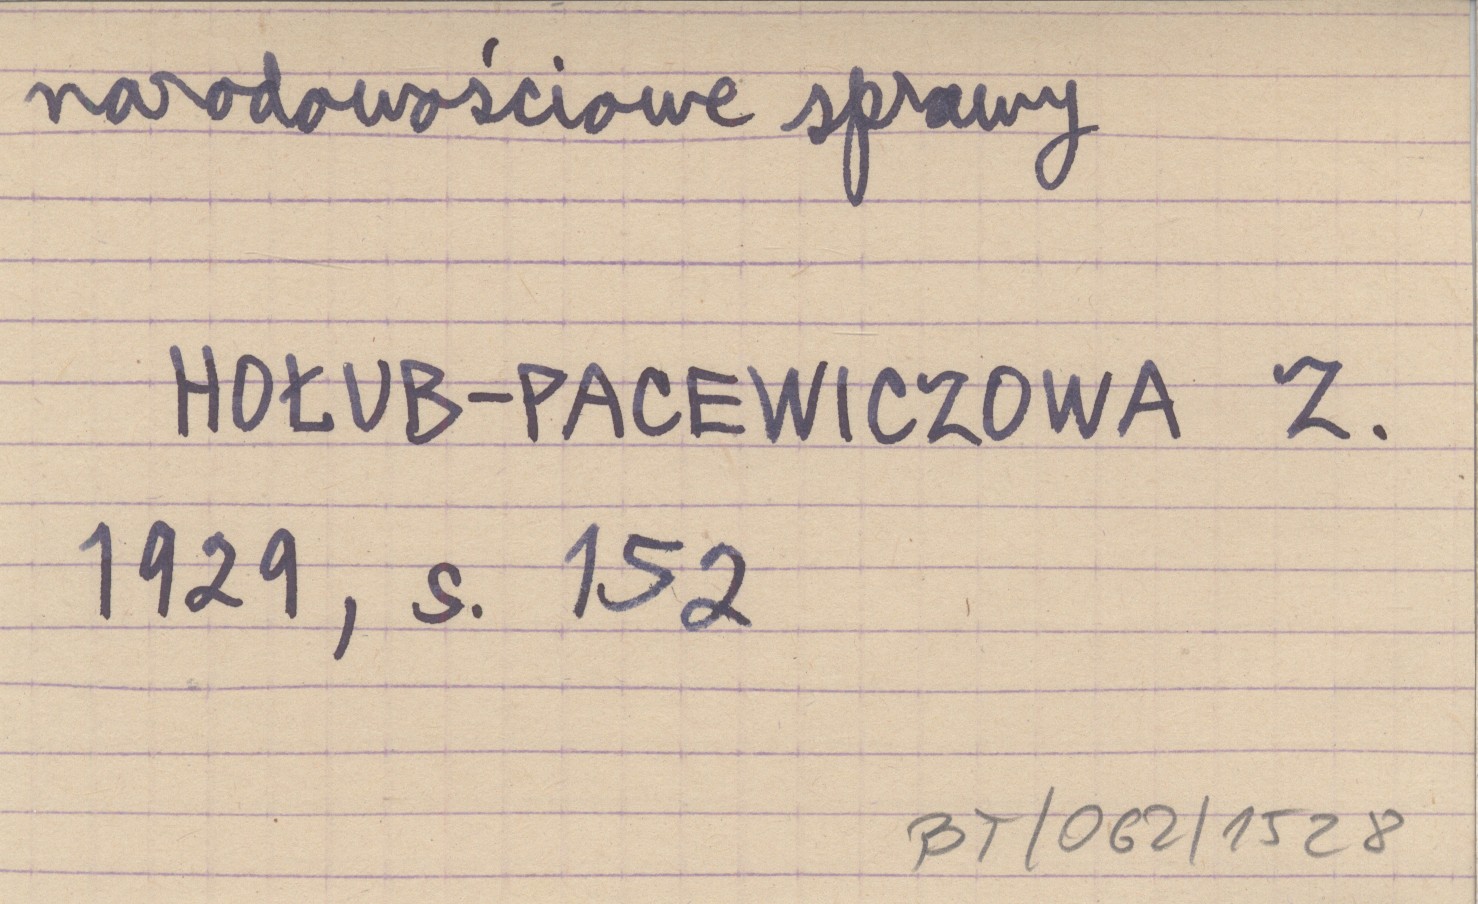 narodowościowe sprawy
HOŁUB-PACEWICZOWA Z.
1929, s. 152
BT/062/1528